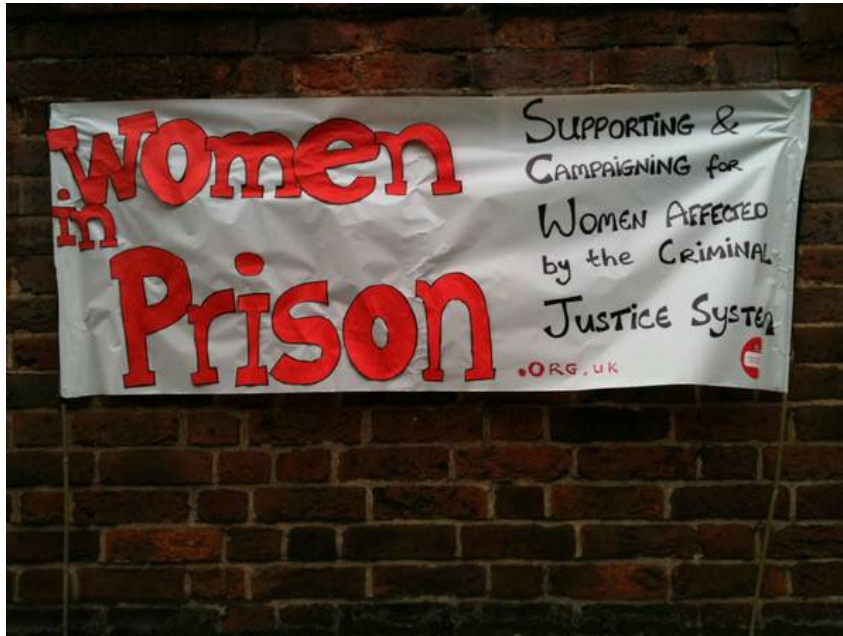 Women
in
Prison
.ORG.UK
SUPPORTING &
CAMPAIGNING for
WOMEN AFFECTED
by the CRIMINAL
JUSTICE SYSTEM